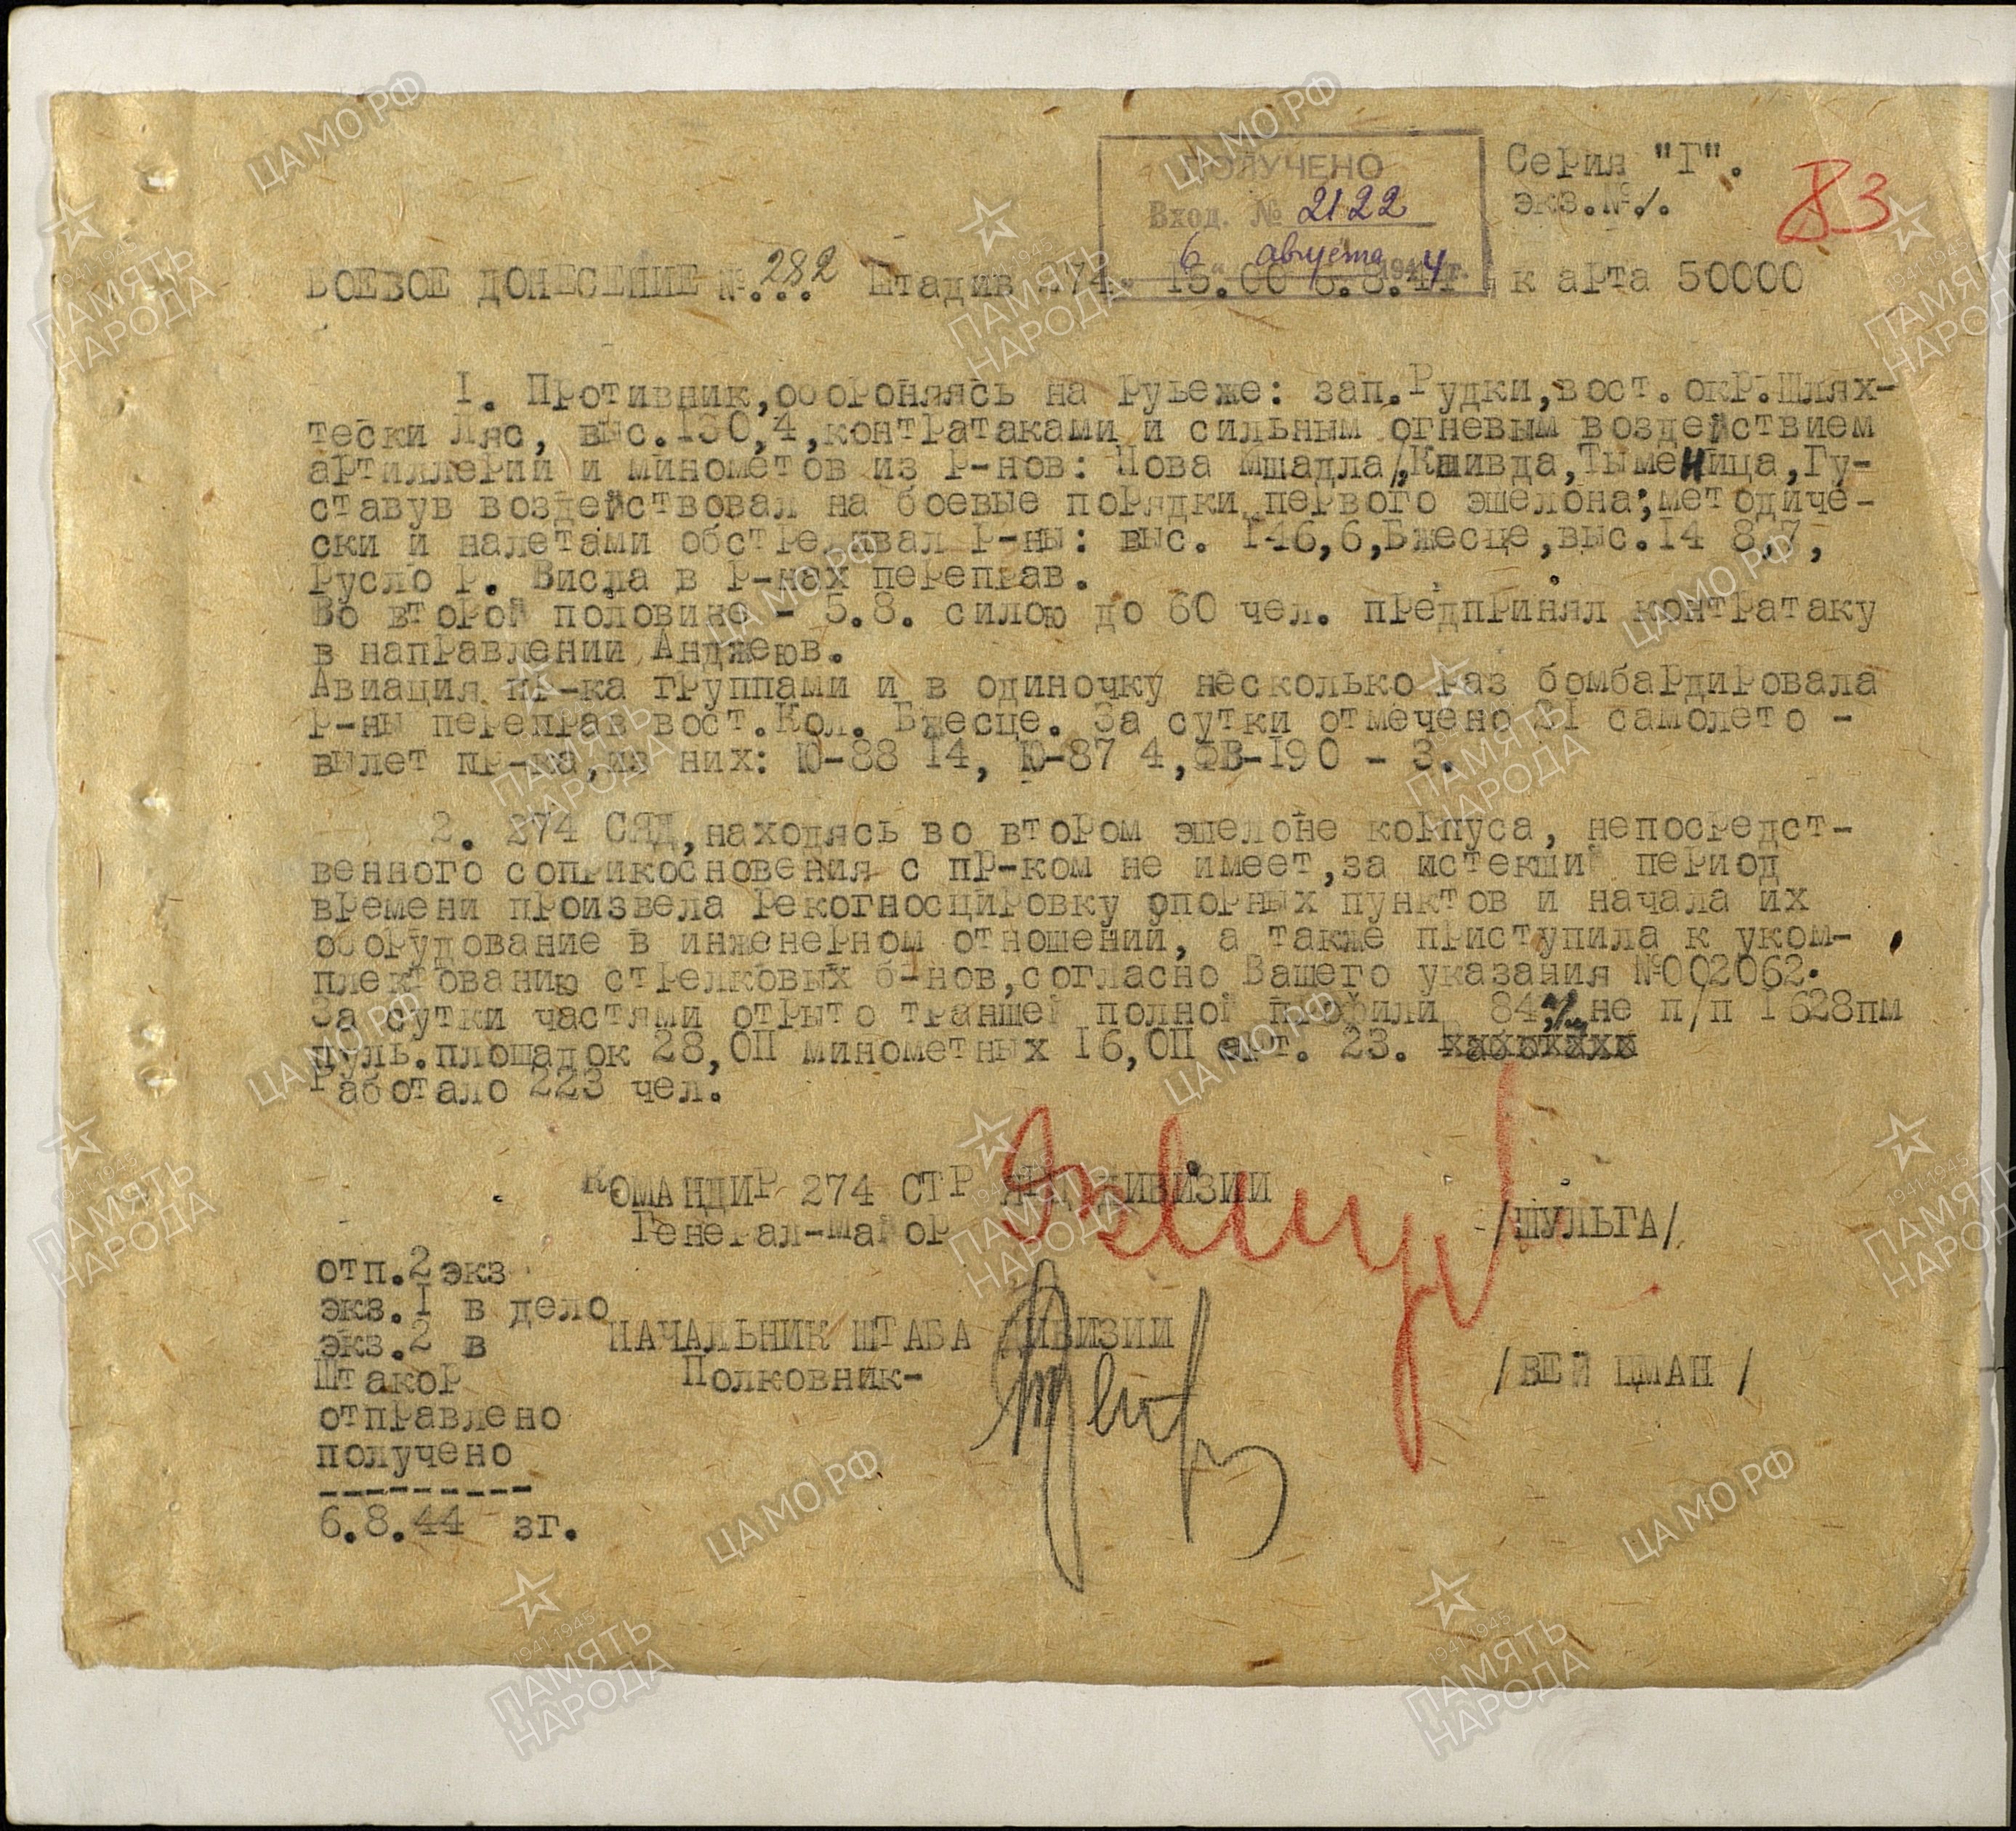 ПОЛУЧЕНО
Вход. № 2122
6 августа 1944 г.
Серия "Г".
экз.№1.
83
БОЕВОЕ ДОНЕСЕНИЕ №.282 Штадив 274. 15.00 6.8.44г к арта 50000
1. Противник,обороняясь на рубеже: зап.Рудки,вост.окр.Шлях-
тески Ляс, выс.130,4,контратаками и сильным огневым воздействием
артиллерии и минометов из р-нов: Нова Мшадла,Кшивда,Тыменица,Гу-
ставув воздействовал на боевые порядки первого эшелона;методиче-
ски и налетами обстреливал р-ны: выс. 146,6,Бжесце,выс.14 8,7,
русло р. Висла в р-нах переправ.
Во второй половине - 5.8. силою до 60 чел. предпринял контратаку
в направлении Анджеюв.
Авиация пр-ка группами и в одиночку несколько раз бомбардировала
р-ны переправ вост.Кол. Бжесце. За сутки отмечено 21 самолето -
вылет пр-ка,из них: Ю-88 14, Ю-87 4,ФВ-190 - 3.
2. 274 СЯД,находясь во втором эшелоне корпуса, непосредст-
венного соприкосновения с пр-ком не имеет,за истекший период
времени произвела рекогносцировку опорных пунктов и начала их
оборудование в инженерном отношении, а также приступила к уком-
плектованию стрелковых б-нов,согласно Вашего указания №002062.
За сутки частями отрыто траншей полной профили 84 не п/п 1628пм
пуль.площадок 28,ОП минометных 16,ОП арт. 23.
Работало 223 чел.
КОМАНДИР 274 СТР ЯРЦ ДИВИЗИИ
Генерал-майор /ШУЛЬГА/
отп.2 экз
экз.1 в дело
экз.2 в
Штакор
отправлено
получено
---------
6.8.44 зг.
НАЧАЛЬНИК ШТАБА ДИВИЗИИ
Полковник- /ВЕЙ ЦМАН /
ЦАМО РФ
1941-1945
ПАМЯТЬ
НАРОДА